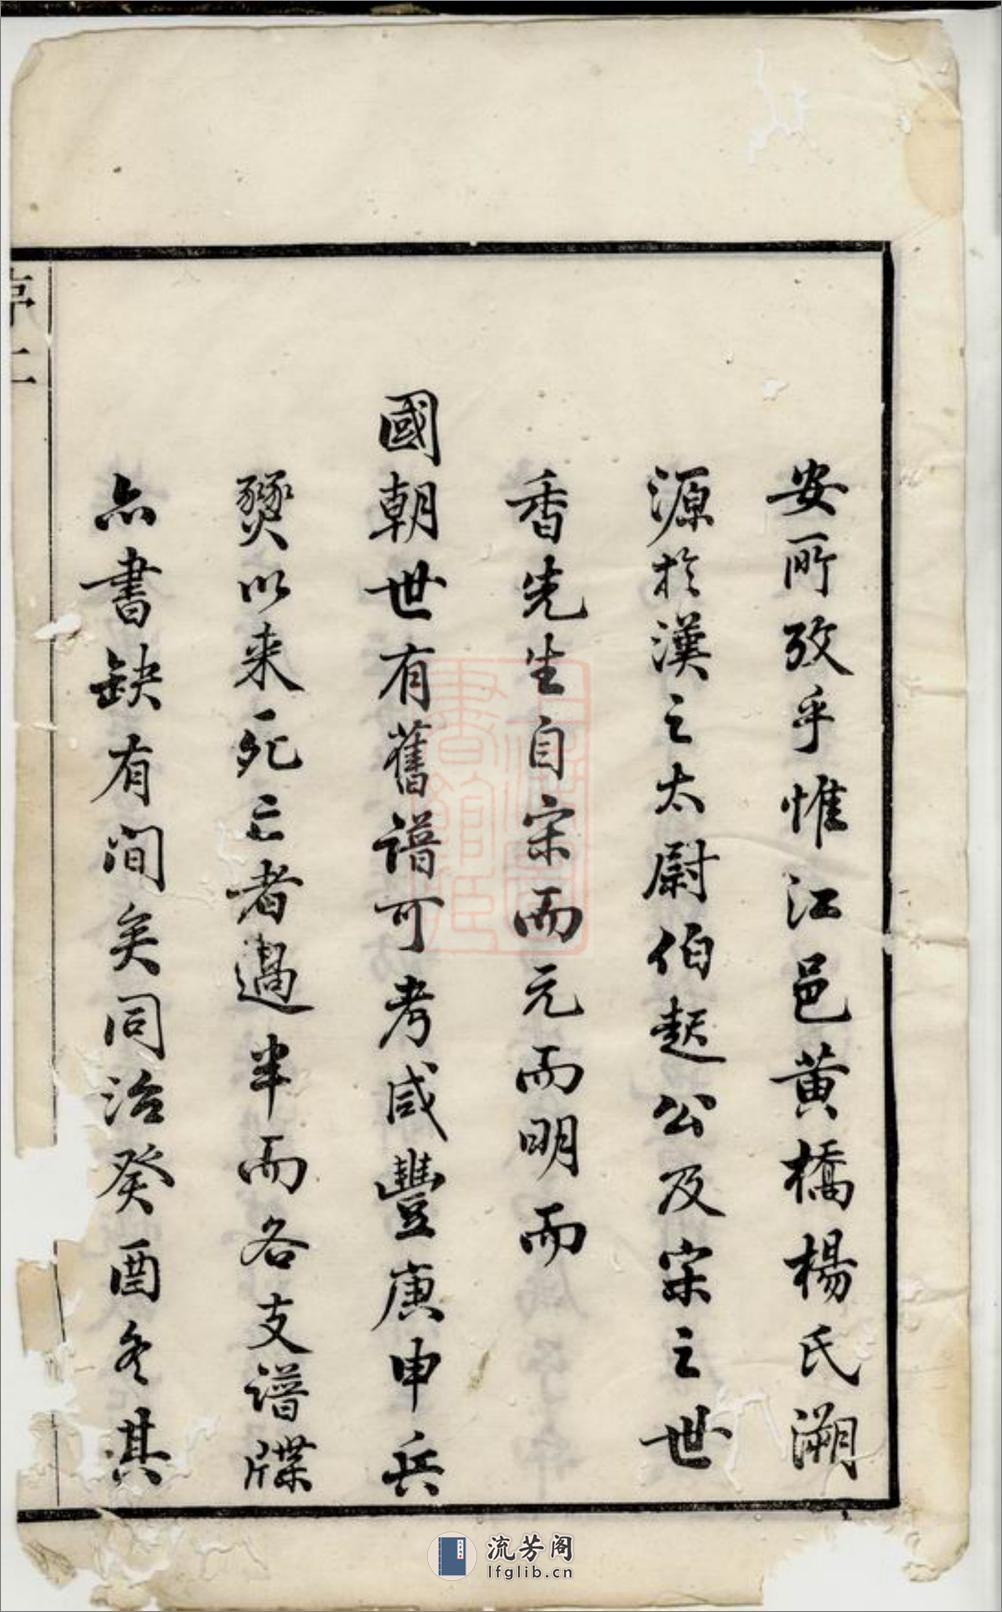 安所攷乎惟江邑黄橋楊氏溯
源於漢之太尉伯起公及宋之世
香先生自宋而元而明而
國朝世有舊譜可考咸豐庚申兵
燹以来死亡者過半而各支譜牒
亦書缺有间矣同治癸酉冬其
序二
流芳阁
lfglib.cn